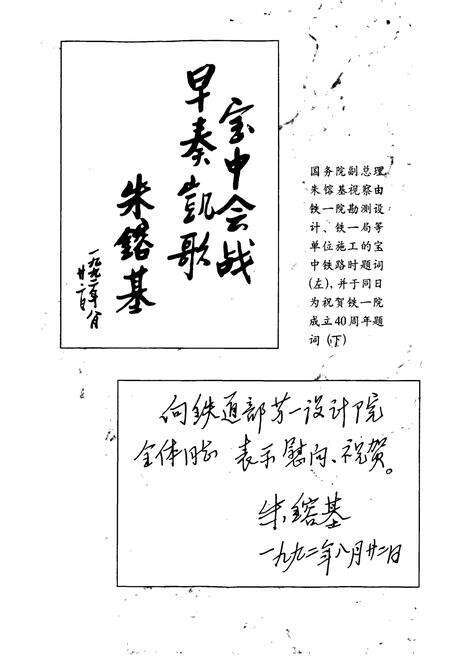 宝中会战
早奏凯歌
朱镕基
一九九二年八月
廿二日
国务院副总理
朱镕基视察由
铁一院勘测设
计、铁一局等
单位施工的宝
中铁路时题词
(左),并于同日
为祝贺铁一院
成立40周年题
词(下)
向铁道部第一设计院
全体同志 表示慰问、祝贺。
朱镕基
一九九二年八月廿二日